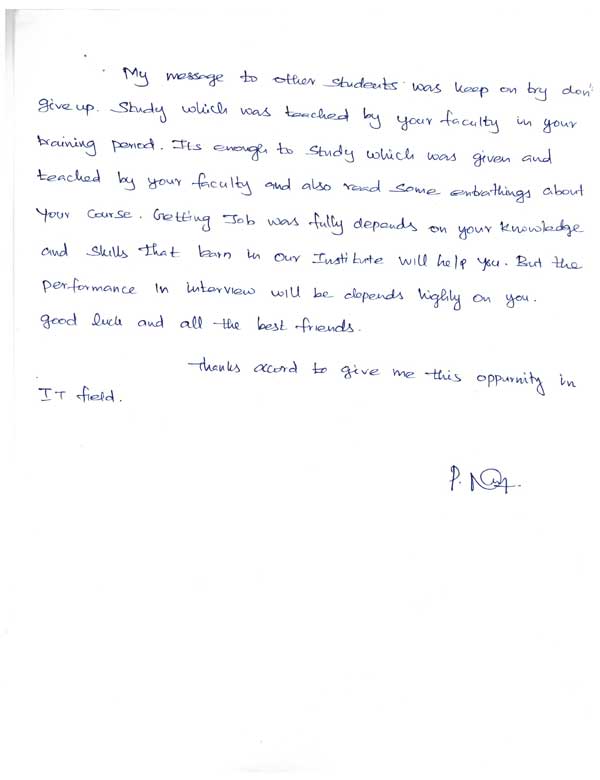 My message to other students was keep on try don't
give up. Study which was teached by your faculty in your
training period. Its enough to study which was given and
teached by your faculty and also read some extrathings about
your course. Getting Job was fully depends on your knowledge
and skills that learn in our Institute will help you. But the
performance in interview will be depends highly on you.
good luck and all the best friends.
Thanks accord to give me this oppurnity in
IT field.
P.